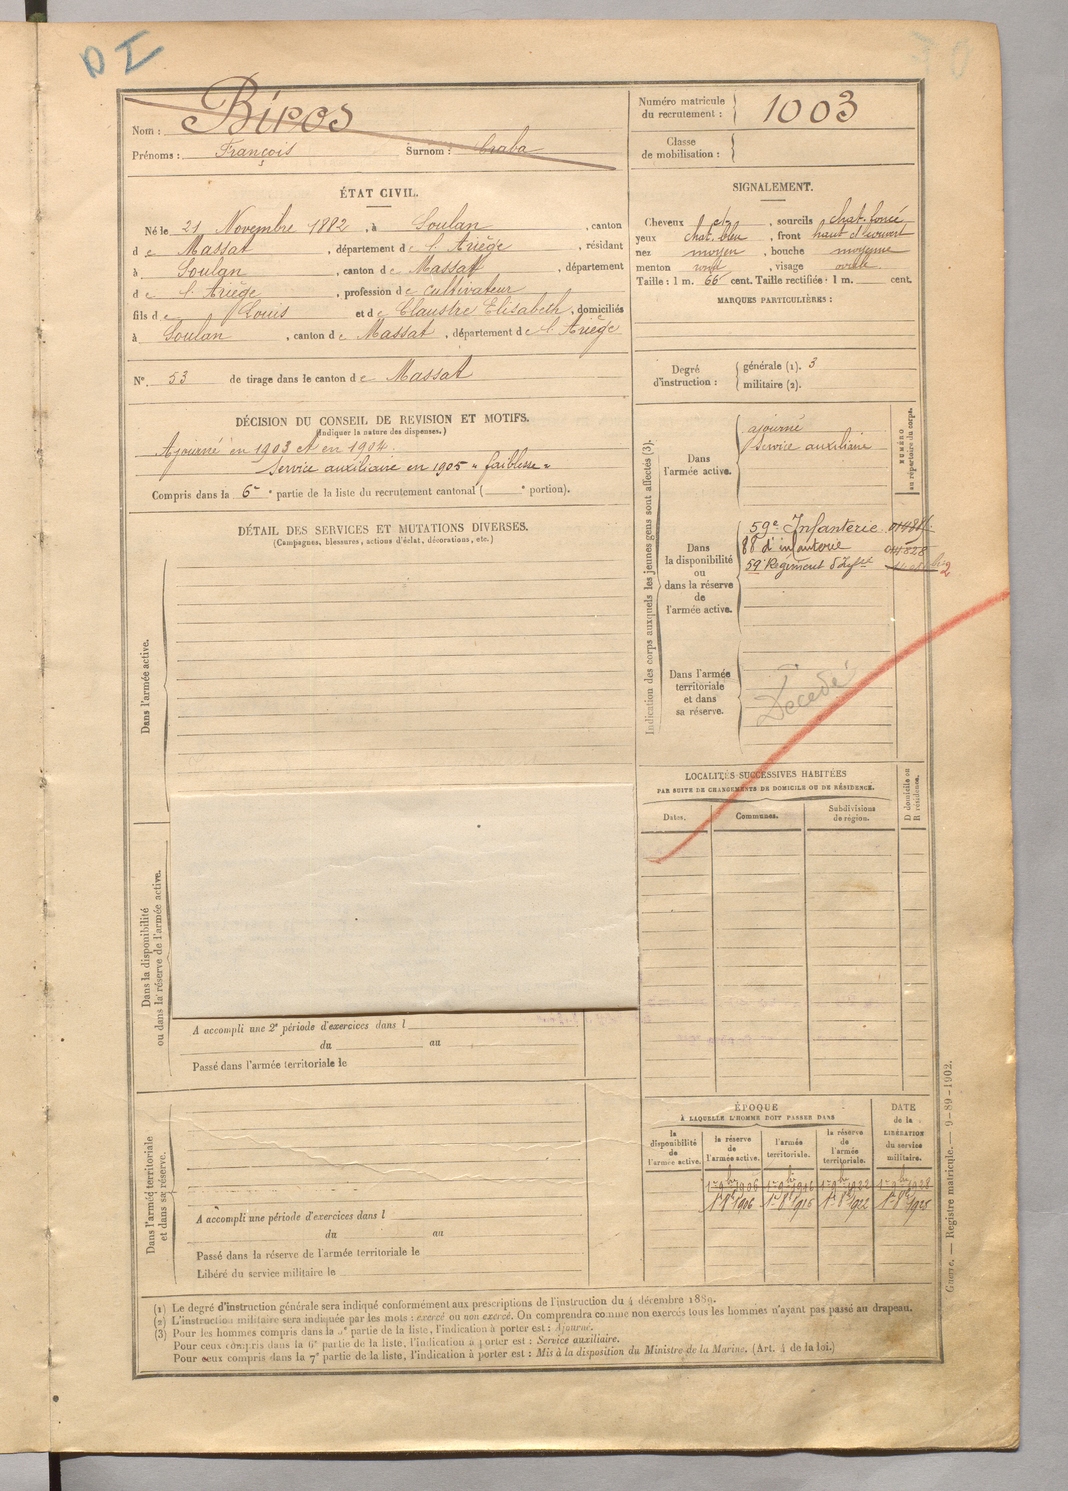 DI
Nom : Biros
Prénoms : François Surnom : Craba
Numéro matricule du recrutement : 1003
Classe de mobilisation :
ÉTAT CIVIL.
Né le 21 Novembre 1882, à Soulan, canton
de Massat, département de l'Ariège, résidant
à Soulan, canton de Massat, département
de l'Ariège, profession de cultivateur
fils de Louis et de Claustre Elisabeth, domiciliés
à Soulan, canton de Massat, département de l'Ariège
N° 53 de tirage dans le canton de Massat
DÉCISION DU CONSEIL DE REVISION ET MOTIFS.
(Indiquer la nature des dispenses.)
Ajourné en 1903 et en 1904.
Service auxiliaire en 1905 "faiblesse"
Compris dans la 6e partie de la liste du recrutement cantonal ( e portion).
DÉTAIL DES SERVICES ET MUTATIONS DIVERSES.
(Campagnes, blessures, actions d'éclat, décorations, etc.)
Dans l'armée active.
Dans la disponibilité
ou dans la réserve de l'armée active.
A accompli une 2e période d'exercices dans l
du au
Passé dans l'armée territoriale le
Dans l'armée territoriale
et dans sa réserve.
A accompli une période d'exercices dans l
du au
Passé dans la réserve de l'armée territoriale le
Libéré du service militaire le
SIGNALEMENT.
Cheveux , sourcils chat. foncé
yeux chat. bleu, front haut découvert
nez moyen, bouche moyenne
menton rond, visage ovale
Taille : 1 m. 66 cent. Taille rectifiée : 1 m. cent.
MARQUES PARTICULIÈRES :
Degré d'instruction :
générale (1). 3
militaire (2).
Indication des corps auxquels les jeunes gens sont affectés (3).
NUMÉRO
au répertoire du corps.
Dans l'armée active.
ajourné
Service auxiliaire
Dans la disponibilité ou dans la réserve de l'armée active.
59e Infanterie
88 d'infanterie
59 Régiment d'Infie
Dans l'armée territoriale et dans sa réserve.
Décédé
LOCALITÉS SUCCESSIVES HABITÉES
PAR SUITE DE CHANGEMENTS DE DOMICILE OU DE RÉSIDENCE.
Dates. Communes. Subdivisions de région. D domicile ou R résidence.
ÉPOQUE
À LAQUELLE L'HOMME DOIT PASSER DANS
DATE de la LIBÉRATION du service militaire.
la disponibilité de l'armée active. la réserve de l'armée active. l'armée territoriale. la réserve de l'armée territoriale.
1er 9bre 1906 1er 9bre 1916 1er 9bre 1922 1er 9bre 1928
1er 8bre 1906 1er 8bre 1916 1er 8bre 1922 1er 8bre 1928
Guerre. — Registre matricule. — 9-89-1902.
(1) Le degré d'instruction générale sera indiqué conformément aux prescriptions de l'instruction du 4 décembre 1889.
(2) L'instruction militaire sera indiquée par les mots : exercé ou non exercé. On comprendra comme non exercés tous les hommes n'ayant pas passé au drapeau.
(3) Pour les hommes compris dans la 5e partie de la liste, l'indication à porter est : Ajourné.
Pour ceux compris dans la 6e partie de la liste, l'indication à porter est : Service auxiliaire.
Pour ceux compris dans la 7e partie de la liste, l'indication à porter est : Mis à la disposition du Ministre de la Marine. (Art. 4 de la loi.)